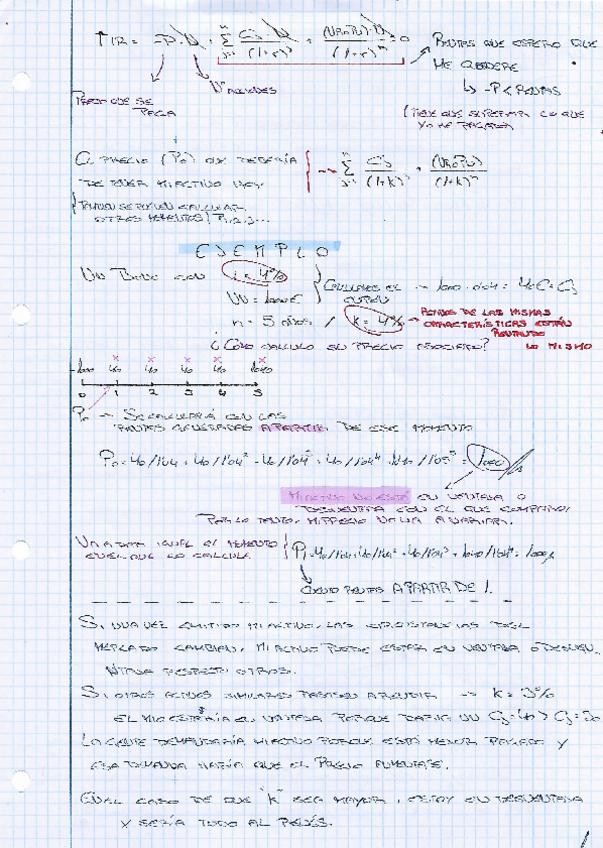 TIR = -P · N + Σ Cj · N / (1+r)^j + (VR o PV) · N / (1+r)^n = 0
RENTAS QUE ESPERO QUE
ME GENERE
↳ -P < RENTAS
(TIENE QUE SUPERAR LO QUE
YO HE PAGADO)
Nº ACCIONES
PRECIO QUE SE
PAGA
EL PRECIO (P0) QUE DEBERÍA
DE TENER MI ACTIVO HOY
→ Σ Cj / (1+k)^j + (VR o PV) / (1+k)^n
TAMBIÉN SE PUEDEN CALCULAR
OTROS MOMENTOS / P1, 2, 3...
EJEMPLO
UN BONO CON i = 4%
VN = 1000€
n = 5 AÑOS / k = 4%
CALCULAMOS EL → 1000 · 0'04 = 40€ = Cj
CUPÓN
→ BONOS DE LAS MISMAS
CARACTERÍSTICAS ESTÁN
RENTANDO
LO MISMO
¿CÓMO CALCULO SU PRECIO ASOCIADO?
-1000 40 40 40 40 1040
0 1 2 3 4 5
P0 → SE CALCULARÁ CON LAS
RENTAS GENERADAS A PARTIR DE ESE MOMENTO
P0 = 40/1'04 + 40/1'04² + 40/1'04³ + 40/1'04⁴ + 1040/1'04⁵ = 1000
MI ACTIVO NO ESTÁ EN VENTAJA O
DESVENTAJA CON EL QUE COMPARO,
POR LO TANTO, MI PRECIO NO VA A VARIAR.
VA A DAR IGUAL EL MOMENTO
EN EL QUE LO CALCULE
P1 = 40/1'04 + 40/1'04² + 40/1'04³ + 1040/1'04⁴ = 1000
COJO RENTAS A PARTIR DE 1.
SI, UNA VEZ EMITIDO MI ACTIVO, LAS CIRCUNSTANCIAS DEL
MERCADO CAMBIAN, MI ACTIVO PUEDE ESTAR EN VENTAJA O DESVEN-
TAJA RESPECTO OTROS.
SI OTROS ACTIVOS SIMILARES PASASEN A RENDIR → k = 3%
EL MÍO ESTARÍA EN VENTAJA PORQUE DARÍA UN Cj = 40 > Cj = 30
LA GENTE DEMANDARÍA MI ACTIVO PORQUE ESTÁ MEJOR PAGADO Y
ESA DEMANDA HARÍA QUE EL PRECIO AUMENTASE.
EN EL CASO DE QUE "k" SEA MAYOR, ESTOY EN DESVENTAJA
Y SERÍA TODO AL REVÉS.